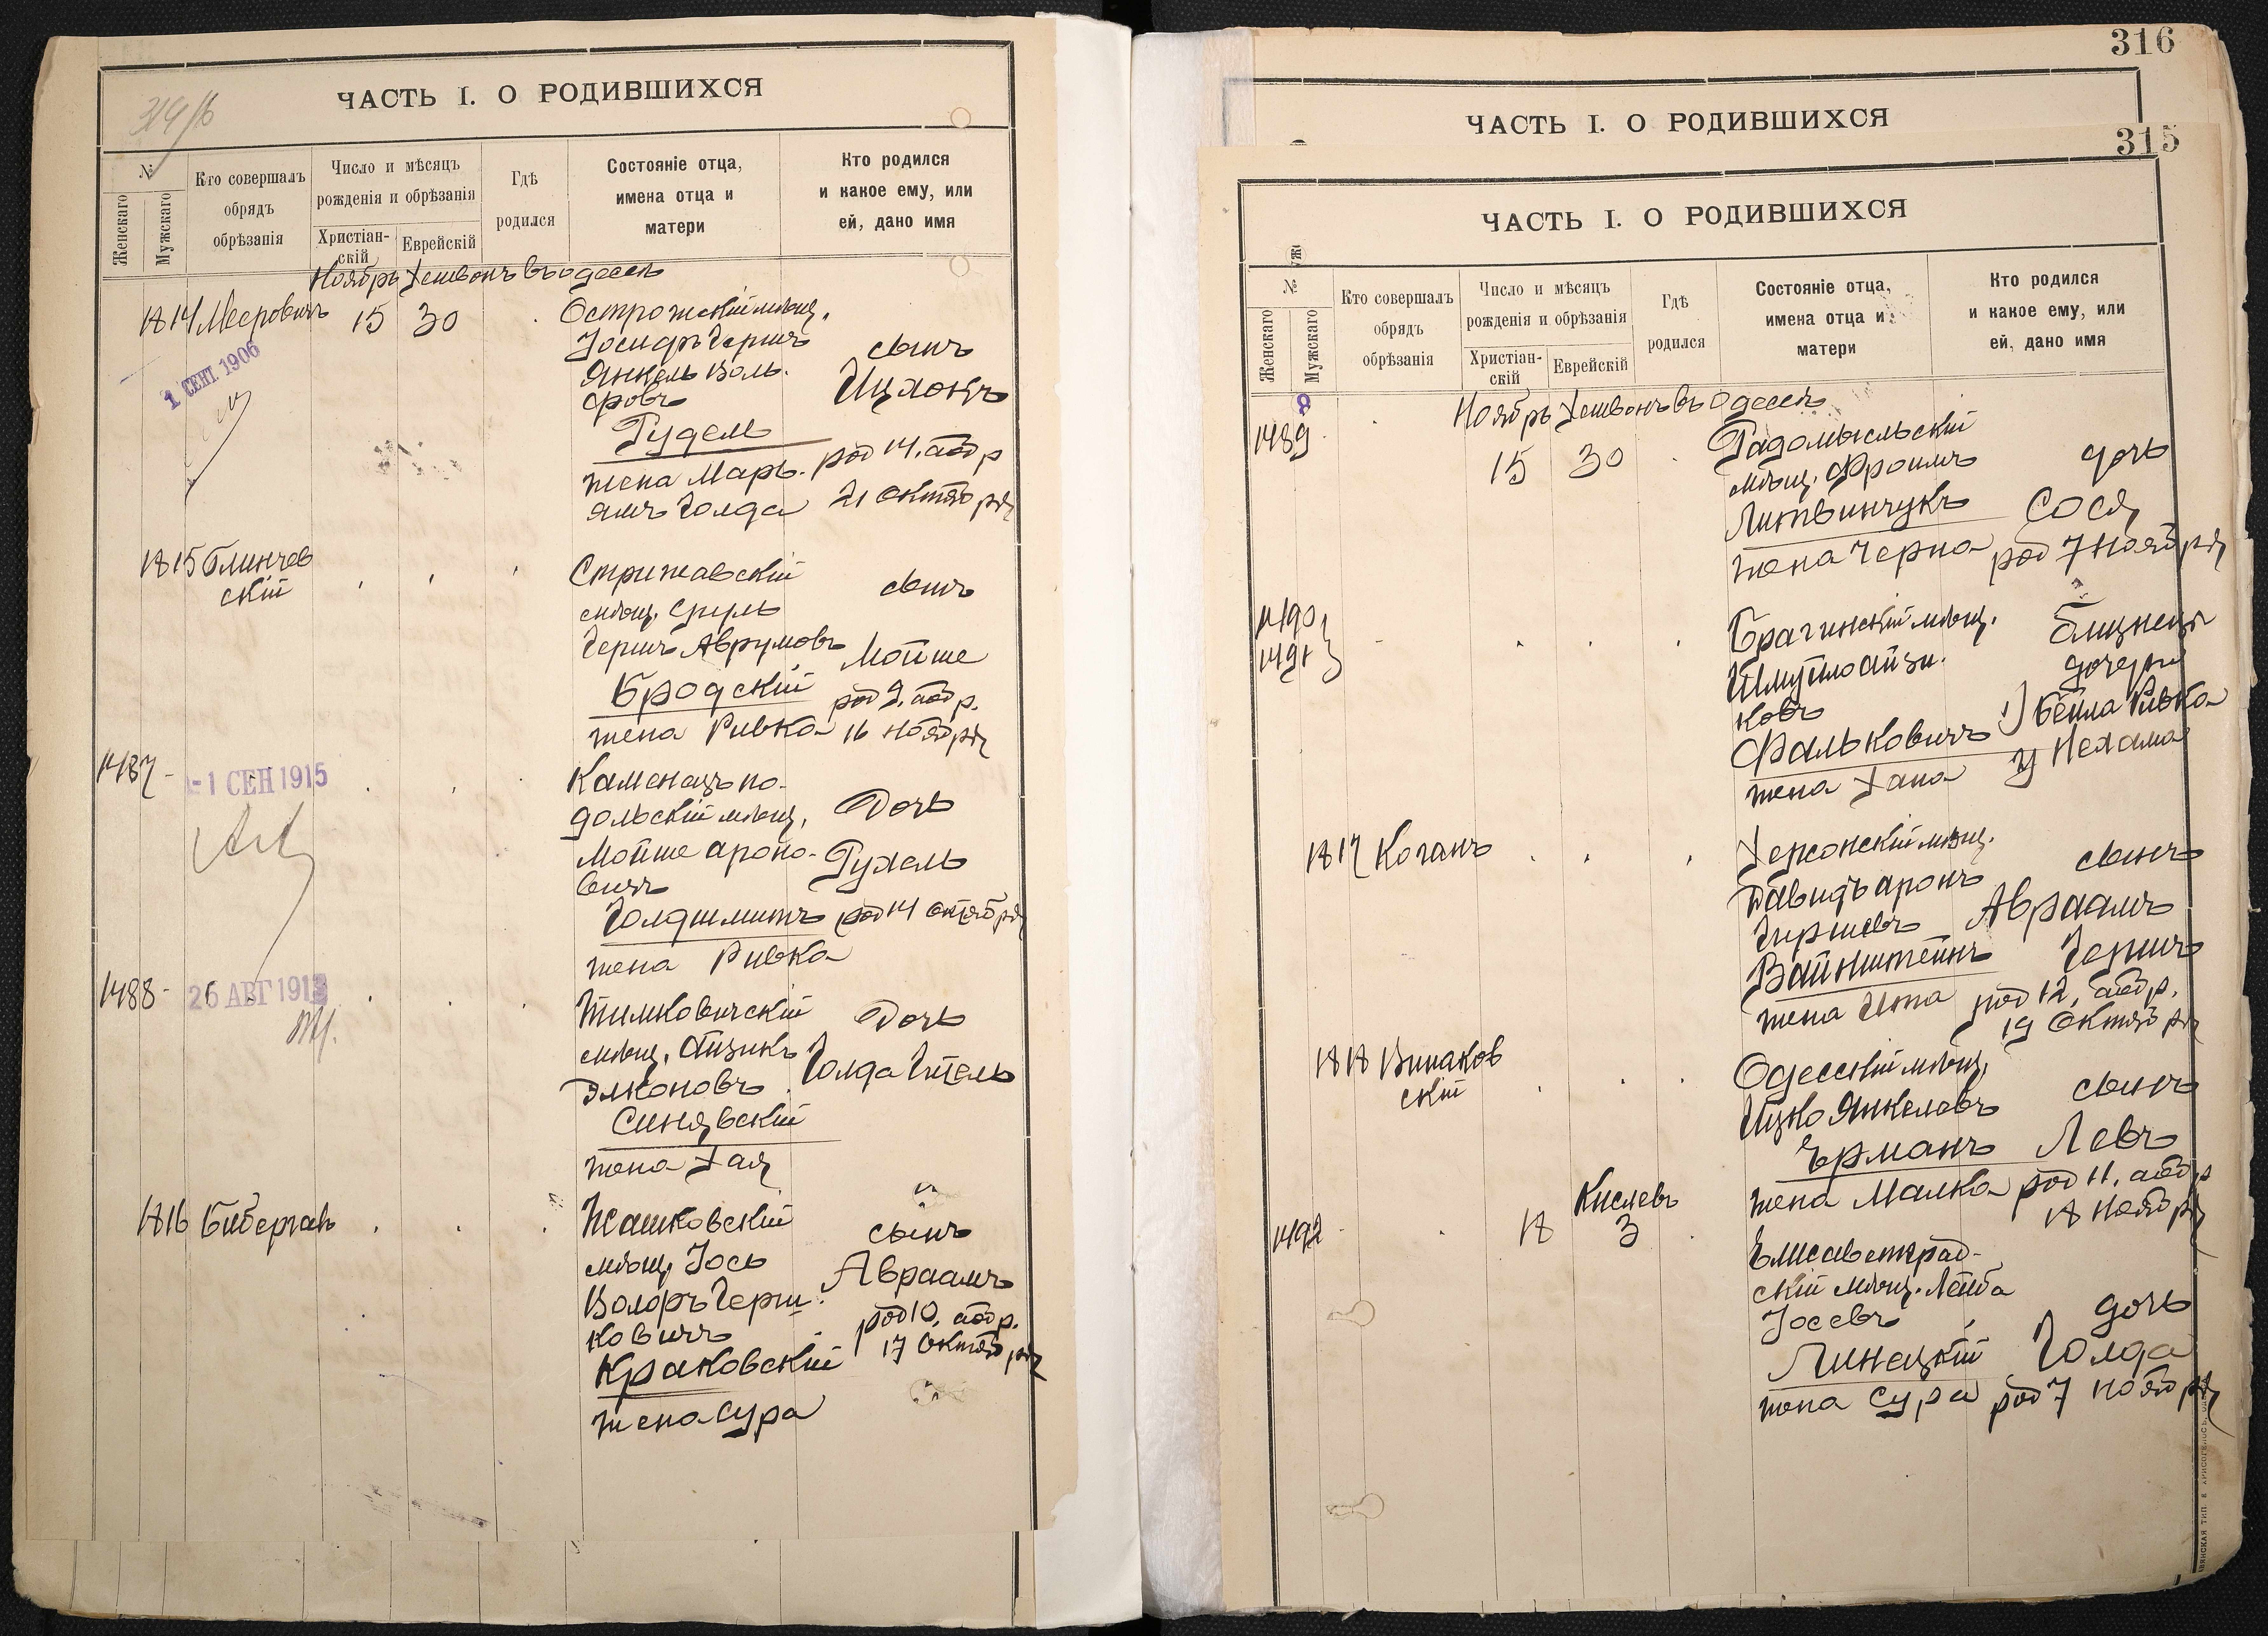 ЧАСТЬ I. О РОДИВШИХСЯ
№
Женскаго
Мужскаго
Кто совершалъ
обрядъ
обрѣзанія
Число и мѣсяцъ
рожденія и обрѣзанія
Христіан-
скій
Еврейскій
Гдѣ
родился
Состояніе отца,
имена отца и
матери
Кто родился
и какое ему, или
ей, дано имя
Ноябрь Хешвонъ въ Одессѣ
1814 Мееровичъ 15 30 Острожскій мѣщ.
Іосифъ Гершъ
Янкель Воль-
фовъ
Гудель
жена Марь-
ямъ Голда
сынъ
Ицхокъ
род 14, аоб р
21 октября
1 СЕНТ 1906
1815 Глинчев
скій
Стрижавскій
мѣщ. Сруль
Гершъ Аврумовъ
Бродскій
жена Ривка
сынъ
Мойше
род 9, аоб р.
16 ноября
1487 -
-1 СЕН 1915
Каменецъ по-
дольскій мѣщ.
Мойше Ароно-
вичъ
Голдшмитъ
жена Ривка
Дочь
Рухель
род 14 октября
1488 -
26 АВГ 1913
Тимковичскій
мѣщ. Айзикъ
Элконовъ
Синявскій
жена Хая
Дочь
Голда Гитель
1816 Бибергалъ
Жашковскій
мѣщ. Іось
Волфъ Герш-
ковичъ
Краковскій
жена Сура
сынъ
Авраамъ
род 10, аоб р.
17 октября
316
ЧАСТЬ I. О РОДИВШИХСЯ
315
ЧАСТЬ I. О РОДИВШИХСЯ
№
Женскаго
Мужскаго
Кто совершалъ
обрядъ
обрѣзанія
Число и мѣсяцъ
рожденія и обрѣзанія
Христіан-
скій
Еврейскій
Гдѣ
родился
Состояніе отца,
имена отца и
матери
Кто родился
и какое ему, или
ей, дано имя
Ноябрь Хешвонъ въ Одессѣ
1489 15 30 Радомысльскій
мѣщ. Фроимъ
Литвинчукъ
жена Черна
дочь
Сося
род 7 ноября
1490
1491
Брагинскій мѣщ.
Шмуйло Айзи-
ковъ
Фальковичъ
жена Хана
близнецы
дочери
1) Бейла Ривка
2) Нехама
1817 Коганъ
Херсонскій мѣщ.
Давидъ Аронъ
Гиршевъ
Вайнштейнъ
жена Ита
сынъ
Авраамъ
Гершъ
род 12, аоб р.
19 октября
1818 Винаков
скій
Одесскій мѣщ.
Ицко Янкелевъ
Ерманъ
жена Малка
сынъ
Левъ
род 11, аоб р
18 ноября
Кислевъ
1492 18 3
Елисаветград-
скій мѣщ. Лейба
Іосевъ
Линецкій
жена Сура
дочь
Голда
род 7 ноября